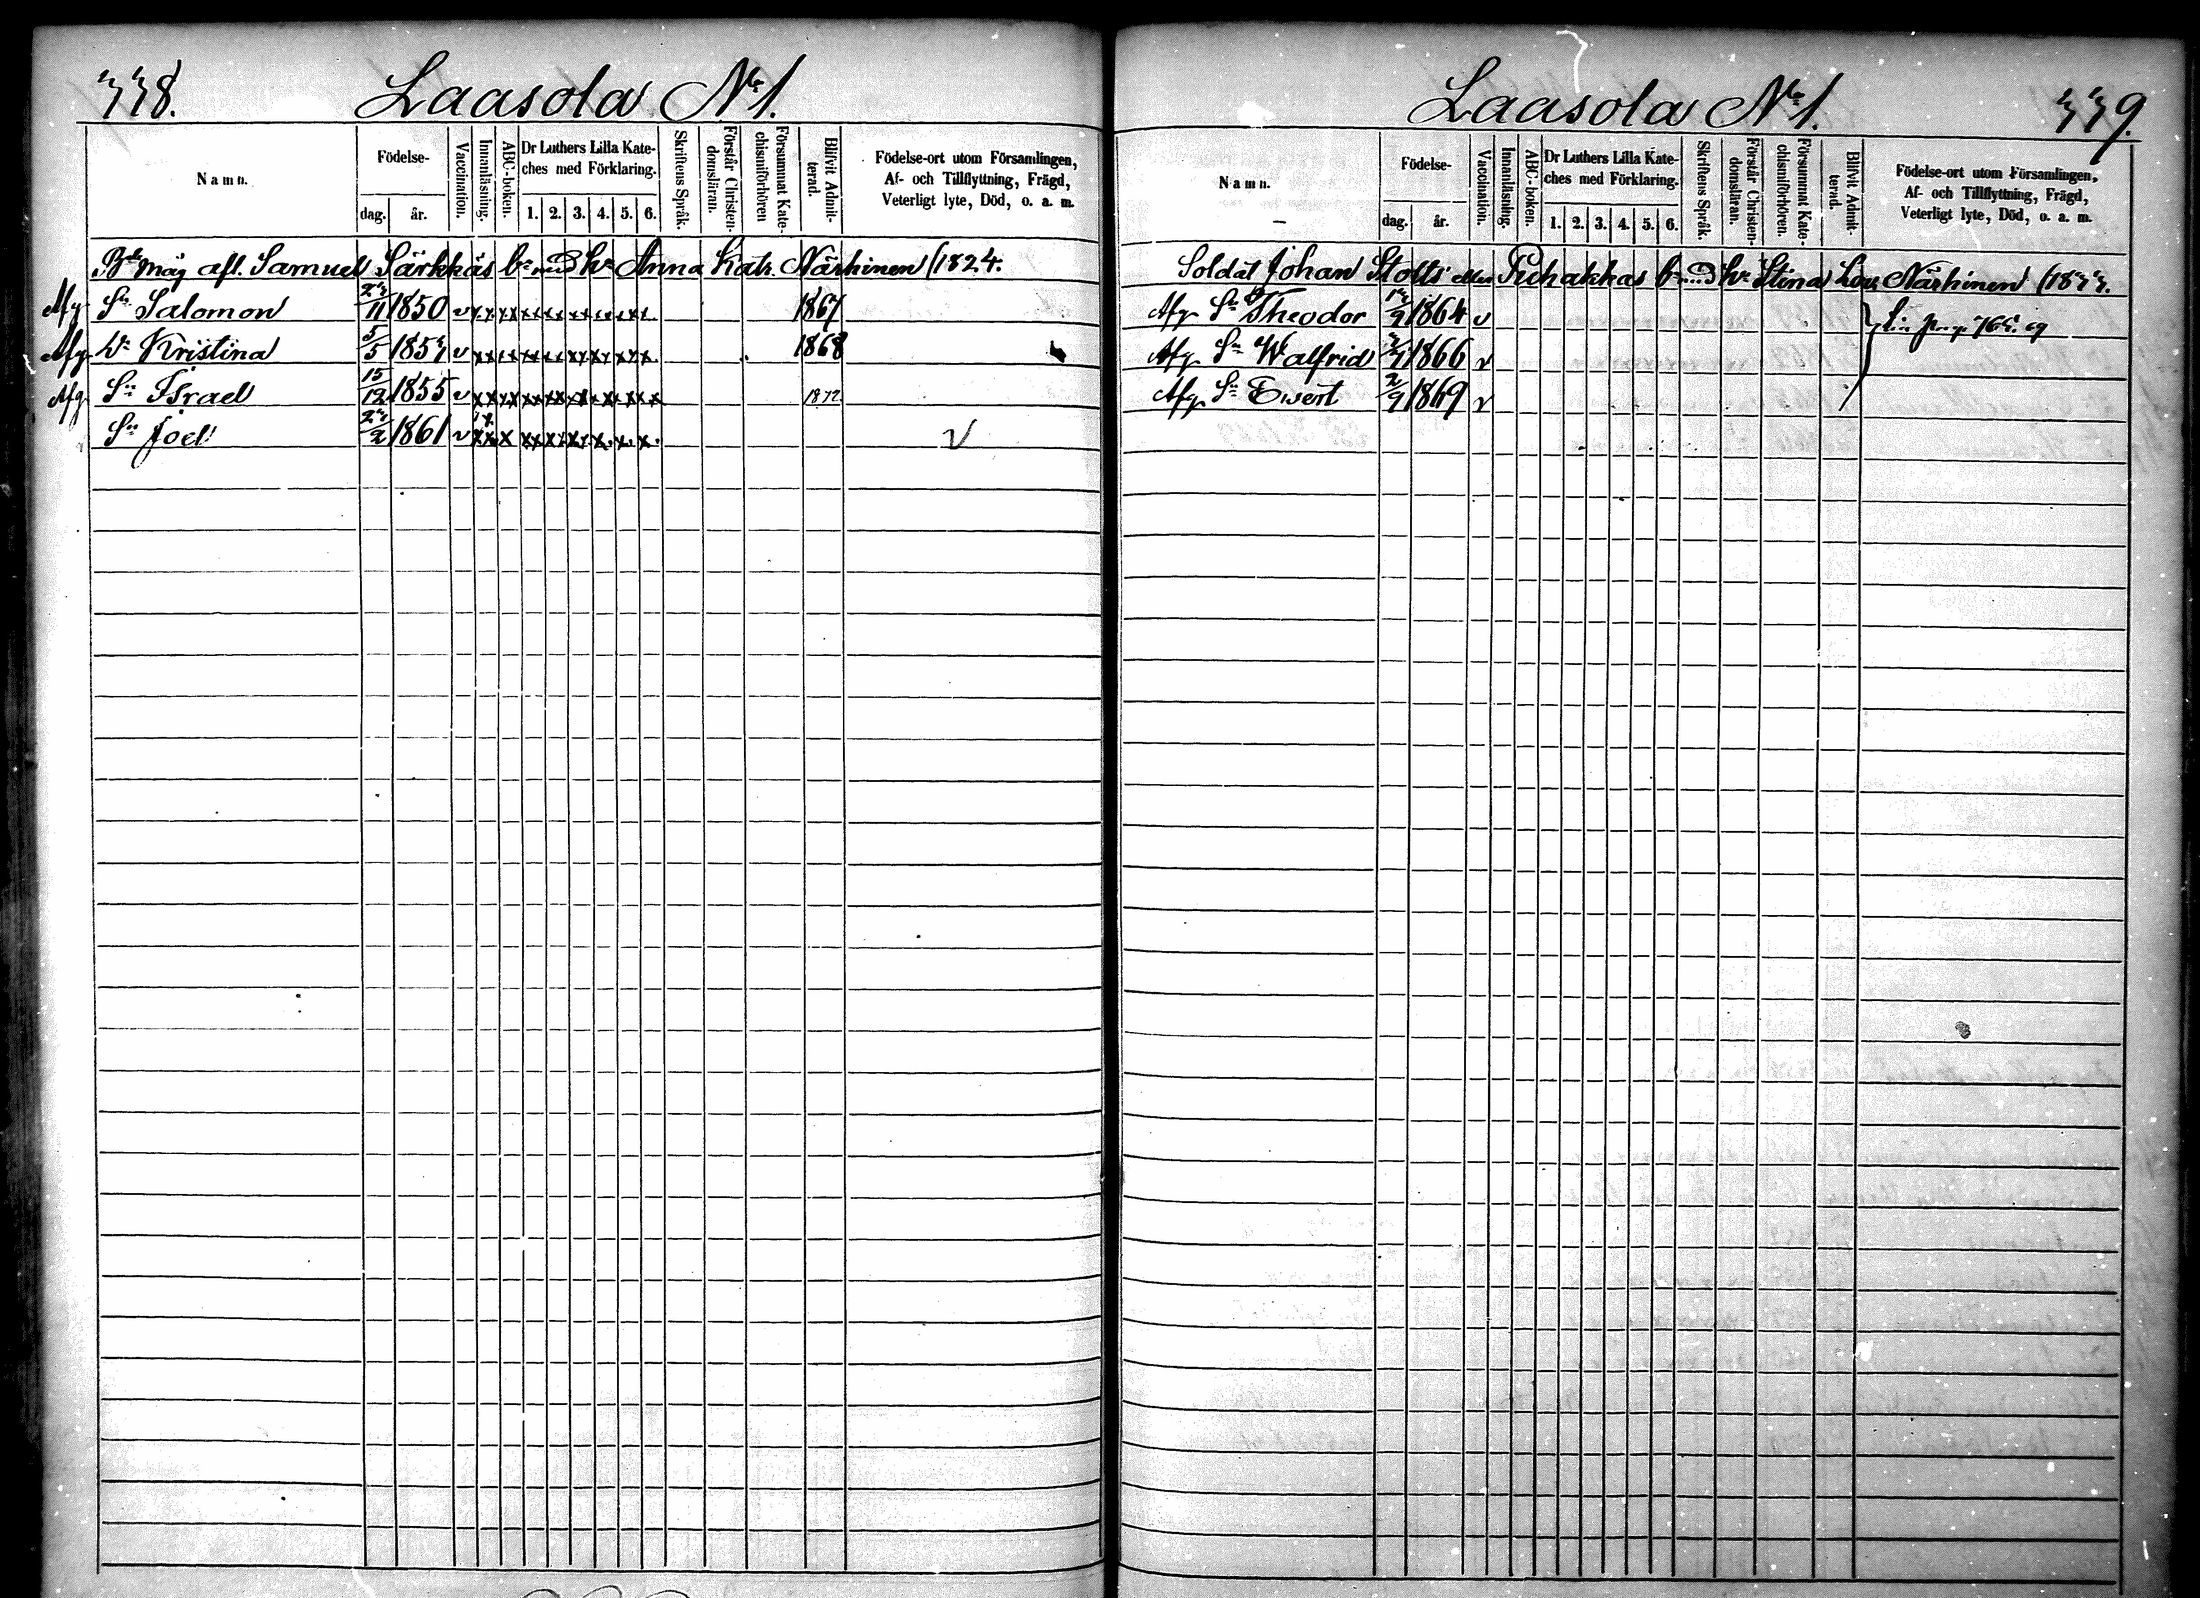 338.
Laasola No 1.
Namn.
Födelse-
dag.
år.
Vaccination.
Innanläsning.
ABC-boken.
Dr Luthers Lilla Kate-
ches med Förklaring.
1. 2. 3. 4. 5. 6.
Skriftens Språk.
Förstår Christen-
domsläran.
Försummat Kate-
chismiförhören
Blifvit Admit-
terad.
Födelse-ort utom Församlingen,
Af- och Tillflyttning, Frägd,
Veterligt lyte, Död, o. a. m.
måg afl. Samuel Särkkäs bn med hu Anna Katr. Närhinen (1824.
Afg Sn Salomon 23/11 1850 v xx xx xx xx xx 1867
Afg Dr Kristina 5/5 1853 v xx xx xx xx xx x x x x. 1868
Afg Sn Israel 15/12 1855 v xx xx xx xx xx xx xx xx 1872.
Sn Joel 23/2 1861 v xx x xx xx xx x. x. x. v
Laasola No 1.
339.
Namn.
Födelse-
dag.
år.
Vaccination.
Innanläsning.
ABC-boken.
Dr Luthers Lilla Kate-
ches med Förklaring.
1. 2. 3. 4. 5. 6.
Skriftens Språk.
Förstår Christen-
domsläran.
Försummat Kate-
chismiförhören.
Blifvit Admit-
terad.
Födelse-ort utom Församlingen,
Af- och Tillflyttning, Frägd,
Veterligt lyte, Död, o. a. m.
Soldat Johan Stolts eller Puhakkas bn med hu Stina Lov. Närhinen (1833.
Afg Sn Theodor 13/9 1864 v
Afg Sn Walfrid 3/7 1866 v
Afg Sn Evert 2/9 1869 v